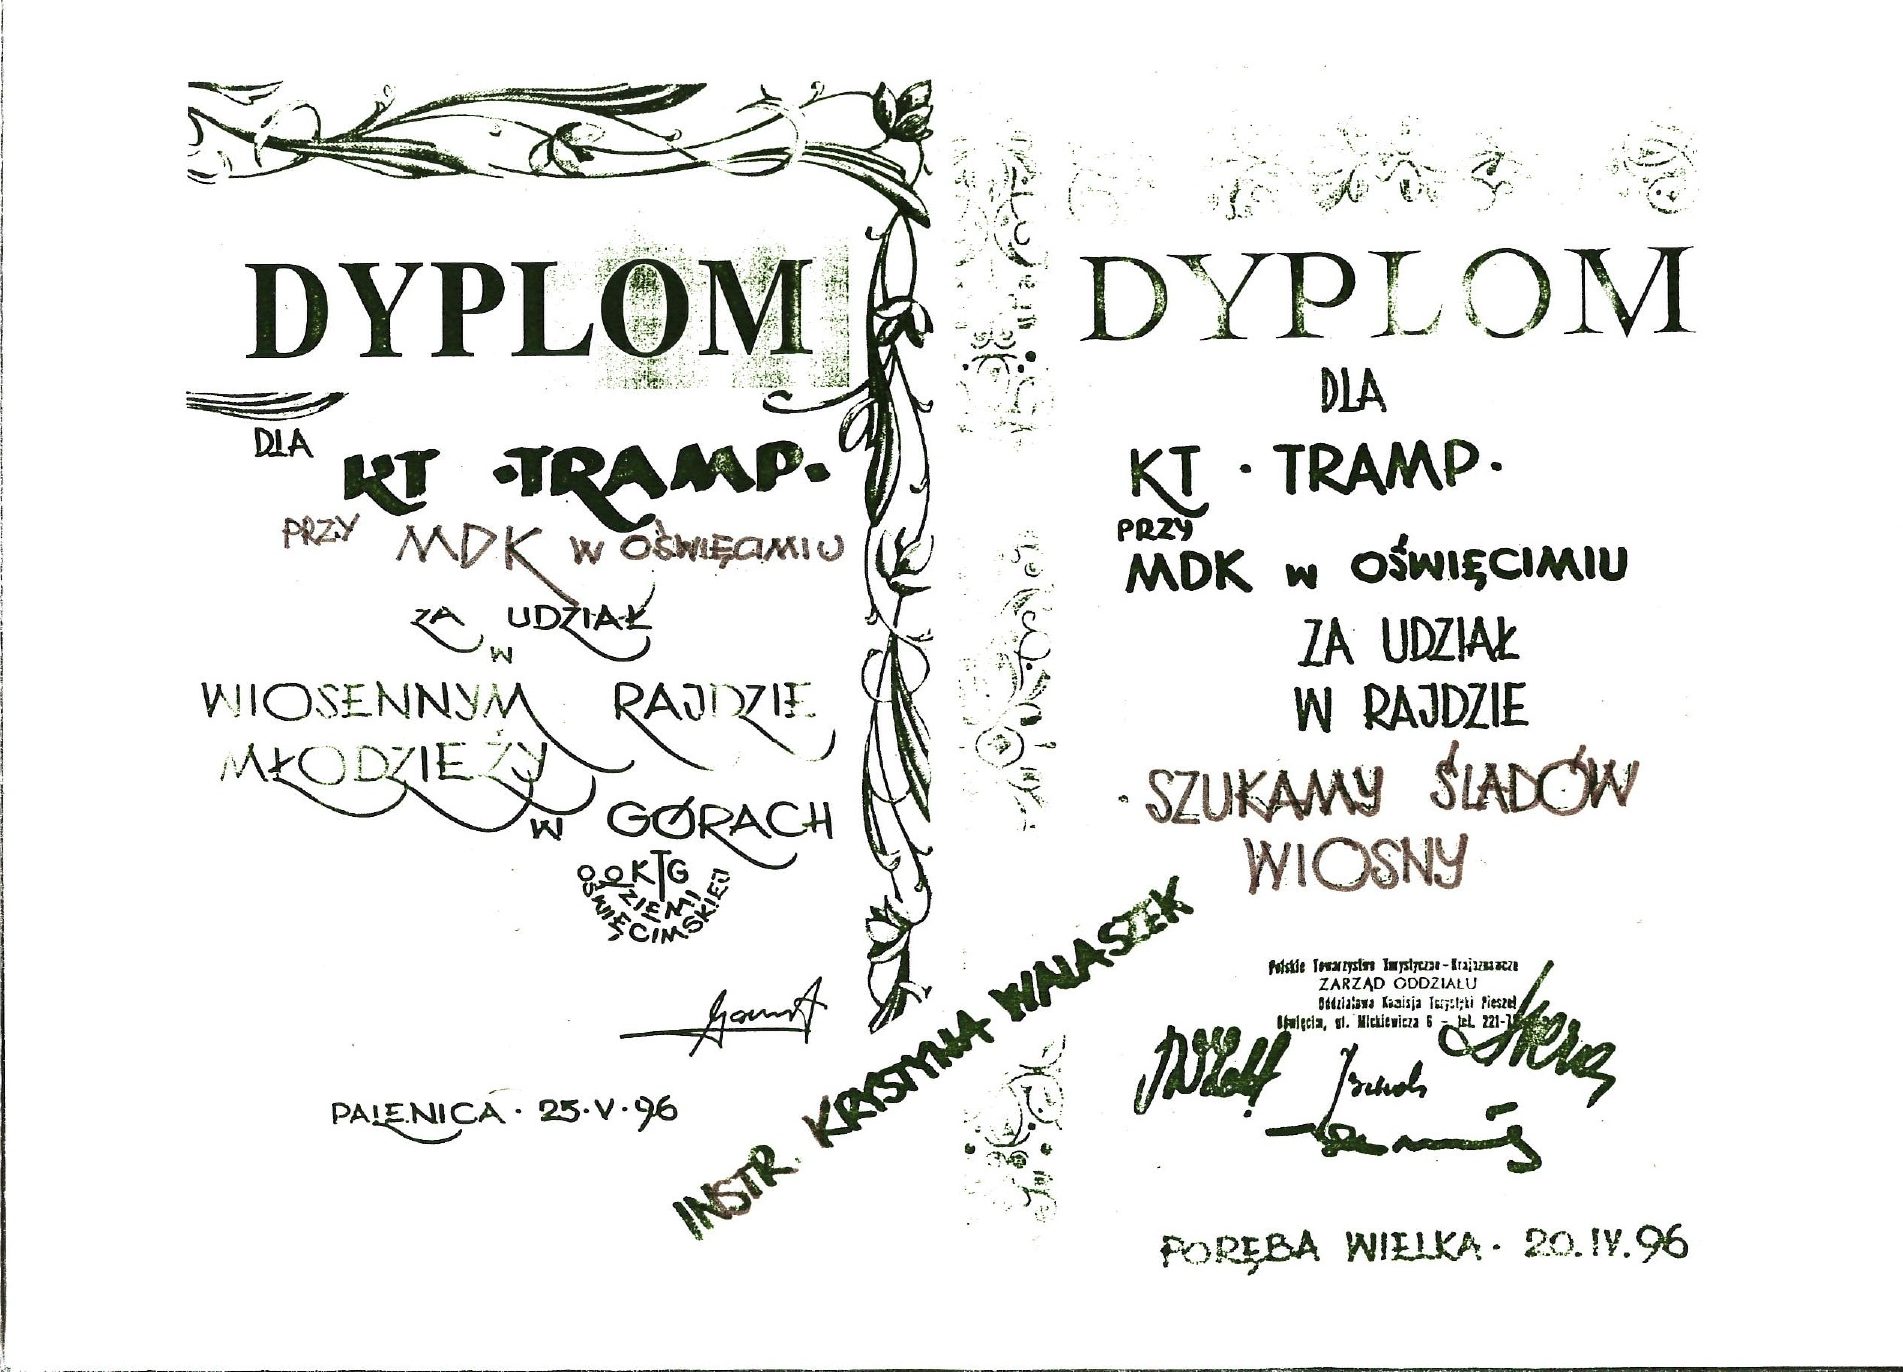 DYPLOM
DLA
KT ·TRAMP·
PRZY MDK W OŚWIĘCIMIU
ZA UDZIAŁ
W
WIOSENNYM RAJDZIE
MŁODZIEŻY
W GÓRACH
OO KTG
ZIEMI
OŚWIĘCIMSKIEJ
PALENICA · 25·V·96
INSTR. KRYSTYNA WNASZEK
DYPLOM
DLA
KT · TRAMP ·
PRZY
MDK W OŚWIĘCIMIU
ZA UDZIAŁ
W RAJDZIE
· SZUKAMY ŚLADÓW
WIOSNY
Polskie Towarzystwo Turystyczno-Krajoznawcze
ZARZĄD ODDZIAŁU
Oddziałowa Komisja Turystyki Pieszej
Oświęcim, ul. Mickiewicza 6 - tel. 221-
PORĘBA WIELKA · 20.IV.96